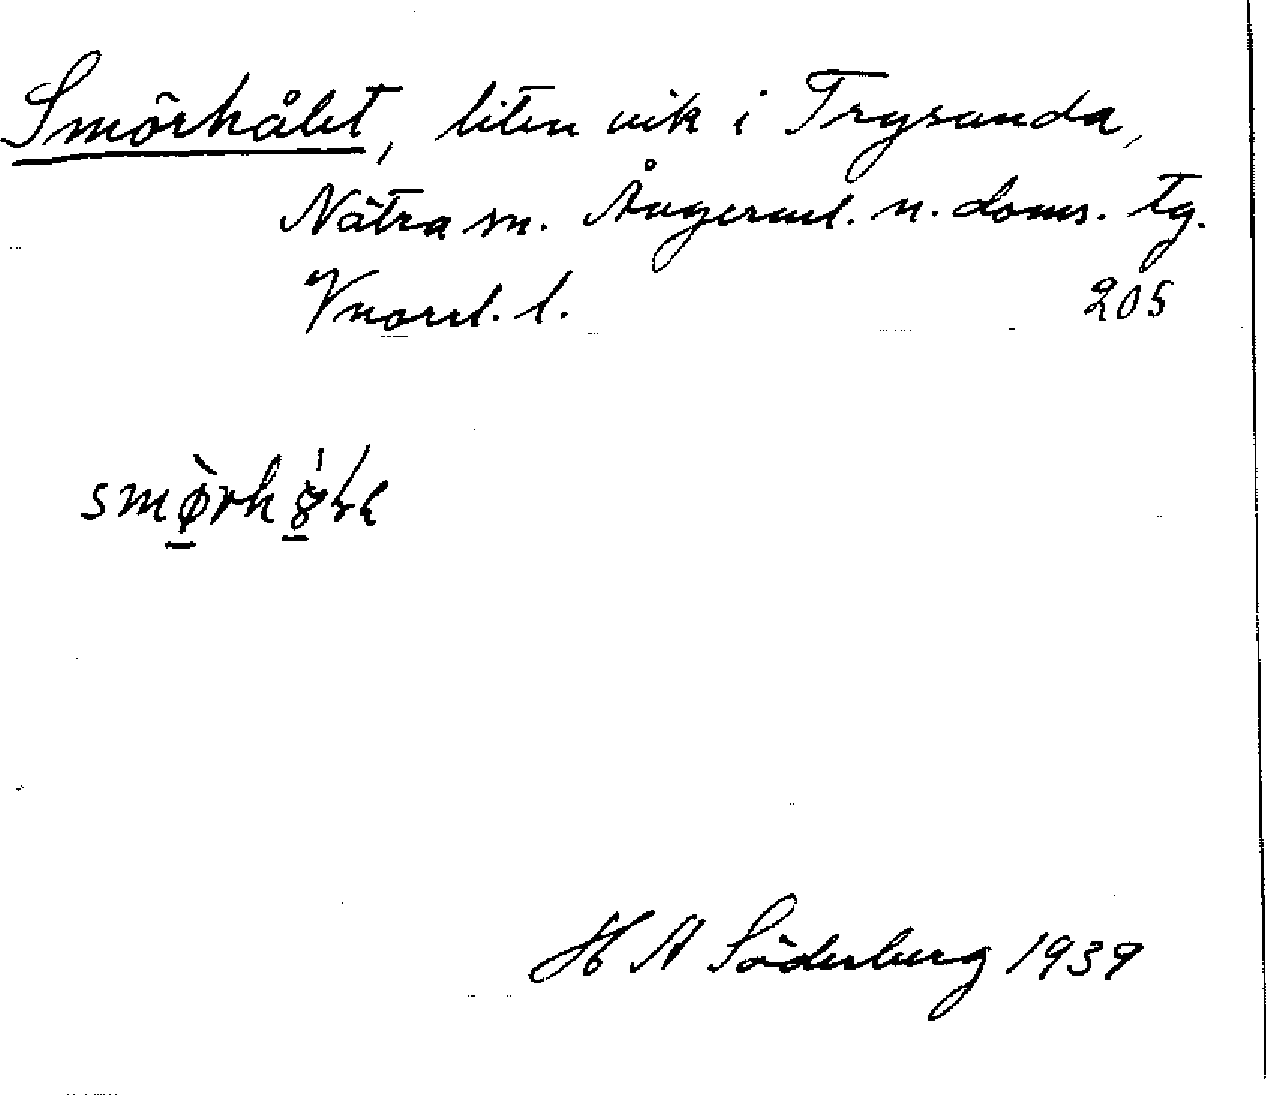 Smörhålet, liten vik i Trysunda,
Nätra sn. Ångerml. n. doms. tg.
Vnorrl. l. 205
H A Söderberg 1939